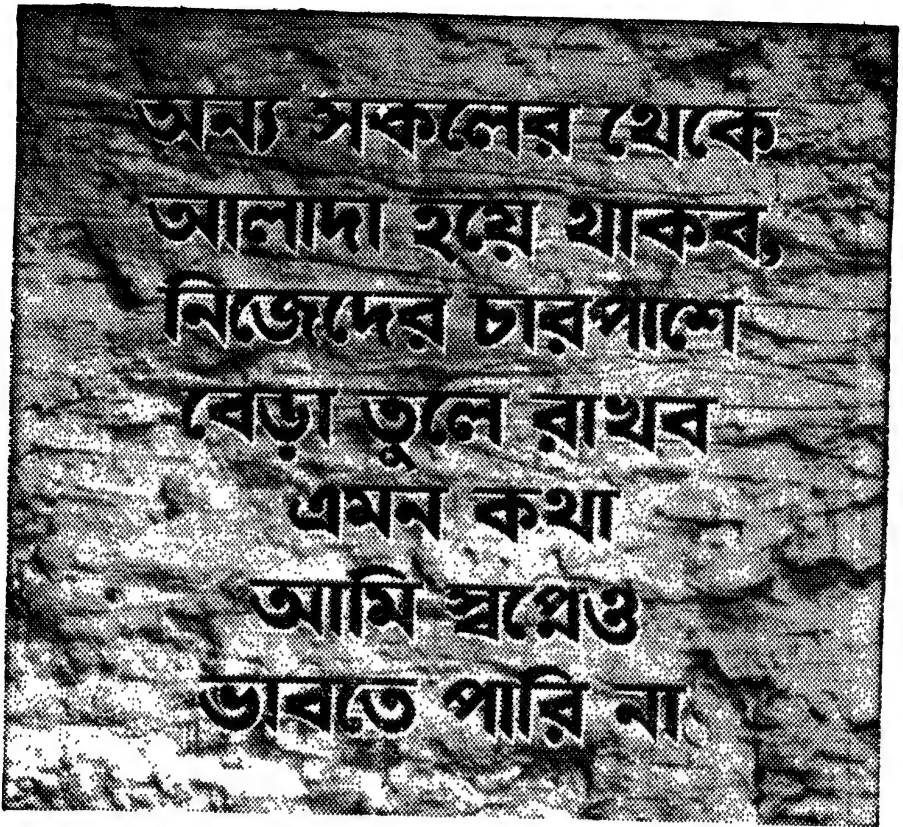 অন্য সকলের থেকে
আলাদা হয়ে থাকব,
নিজেদের চারপাশে
বেড়া তুলে রাখব
এমন কথা
আমি স্বপ্নেও
ভাবতে পারি না